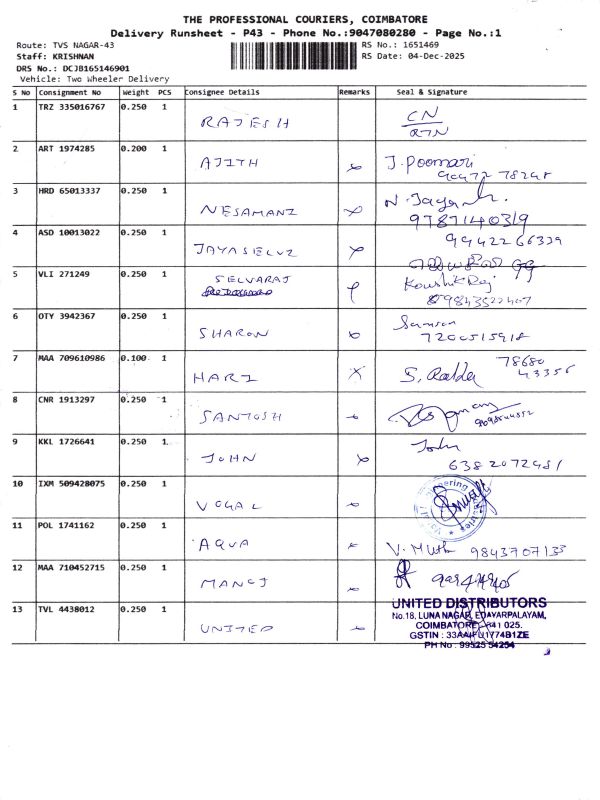 THE PROFESSIONAL COURIERS, COIMBATORE
Delivery Runsheet - P43 - Phone No.:9047080280 - Page No.:1
Route: TVS NAGAR-43
RS No.: 1651469
Staff: KRISHNAN
RS Date: 04-Dec-2025
DRS No.: DCJB165146901
Vehicle: Two Wheeler Delivery
S No Consignment No Weight PCS Consignee Details Remarks Seal & Signature
1 TRZ 335016767 0.250 1 RAJESH CN
RTN
2 ART 1974285 0.200 1 AJITH J. Poomari
3 HRD 65013337 0.250 1 NESAMANI N. Jayanth.
9787140319
4 ASD 10013022 0.250 1 JAYASIELVI 9942266339
5 VLI 271249 0.250 1 SELVARAJ Koushik Raj
09843522407
6 OTY 3942367 0.250 1 SHARON Samson
7200515918
7 MAA 709610986 0.100 1 HARI S. 78680
43356
8 CNR 1913297 0.250 1 SANTOSH
9 KKL 1726641 0.250 1. JOHN John
6382072481
10 IXM 509428075 0.250 1 VOGAL
11 POL 1741162 0.250 1 AQUA V. Muth 9843707133
12 MAA 710452715 0.250 1 MANOJ
13 TVL 4438012 0.250 1 UNITED
UNITED DISTRIBUTORS
No.18, LUNA NAGAR, EDAYARPALAYAM,
COIMBATORE - 641 025.
GSTIN : 33AAIFU1774B1ZE
PH No : 99525 54254